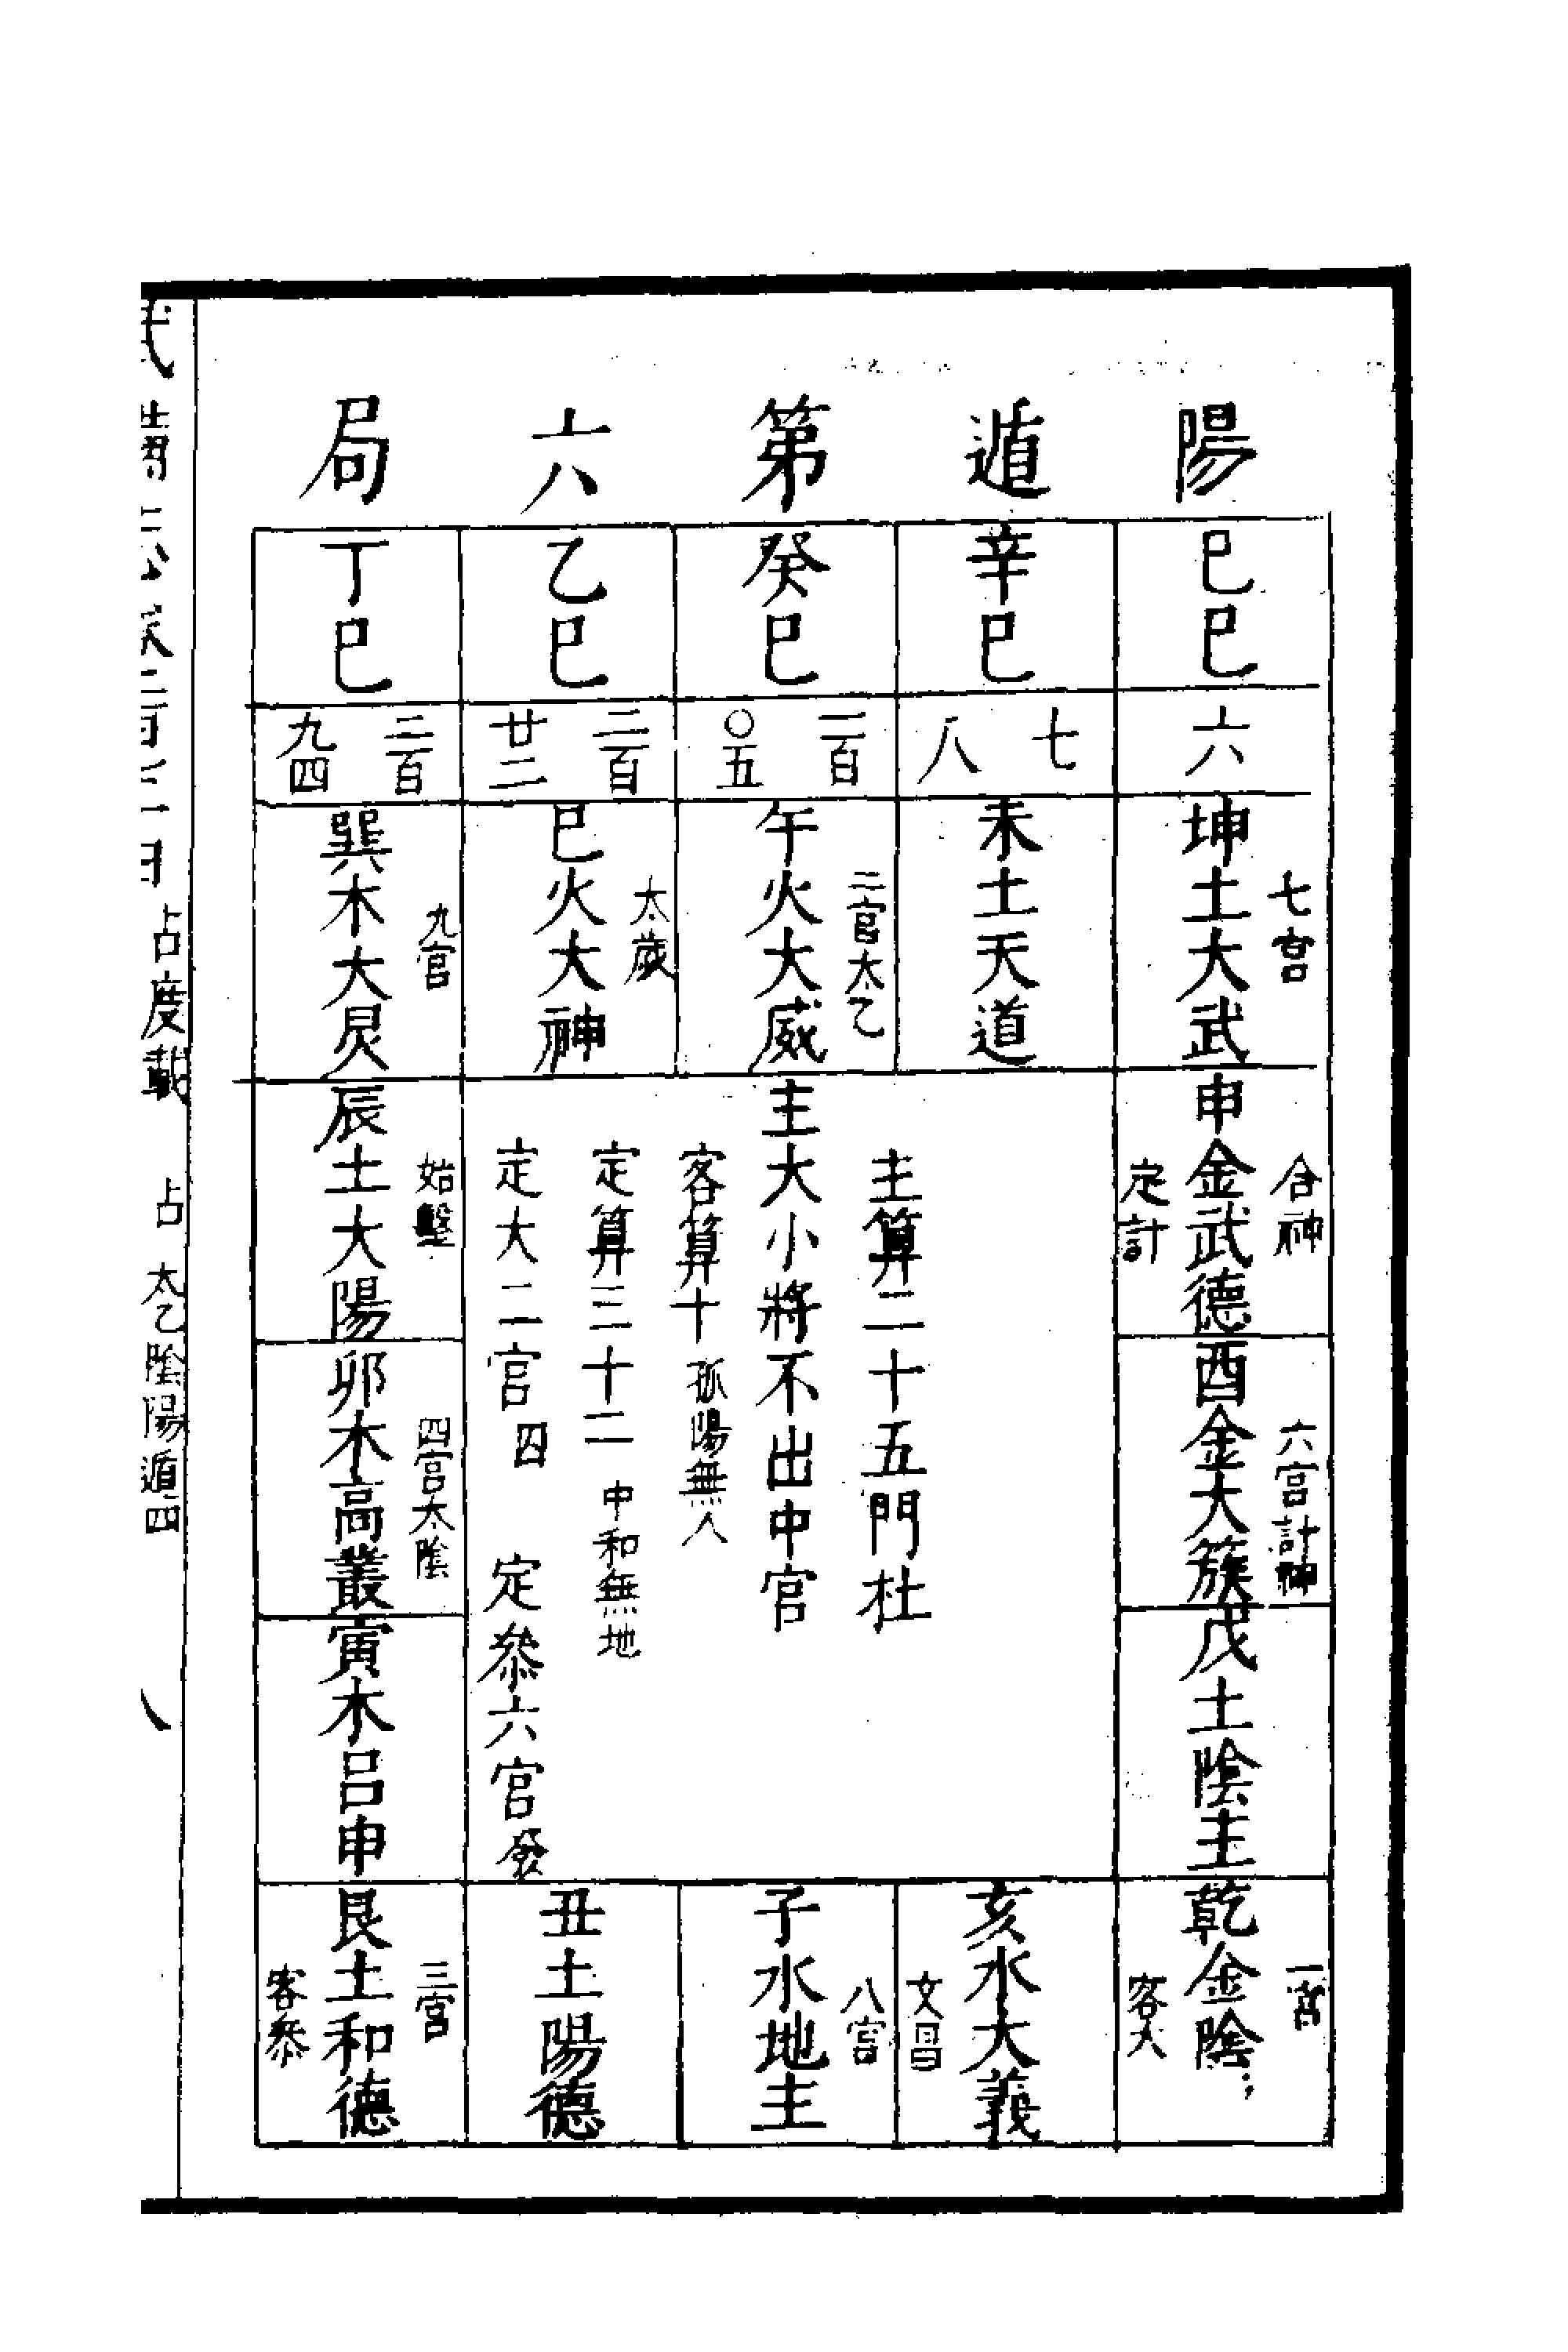 陽遁第六局
己巳
辛巳
癸巳
乙巳
丁巳
六
七
八
一百
〇五
二百
廿二
二百
九四
七宮
坤土大武
未土天道
二宮太乙
午火大威
太歲
巳火大神
九宮
巽木大炅
合神
申金武德
定計
六宮計神
酉金大簇
戊土陰主
一宮
乾金陰〻
客大
主算二十五門杜
主大小將不出中宮
客算十孤陽無人
定算三十二中和無地
定大二宮四 定叅六宮發
始擊
辰土大陽
四宮太陰
卯木高叢
寅木呂申
亥水大義
文昌
八宮
子水地主
丑土陽德
三宮
艮土和德
客叅
占度載 占 太乙陰陽遁四 八